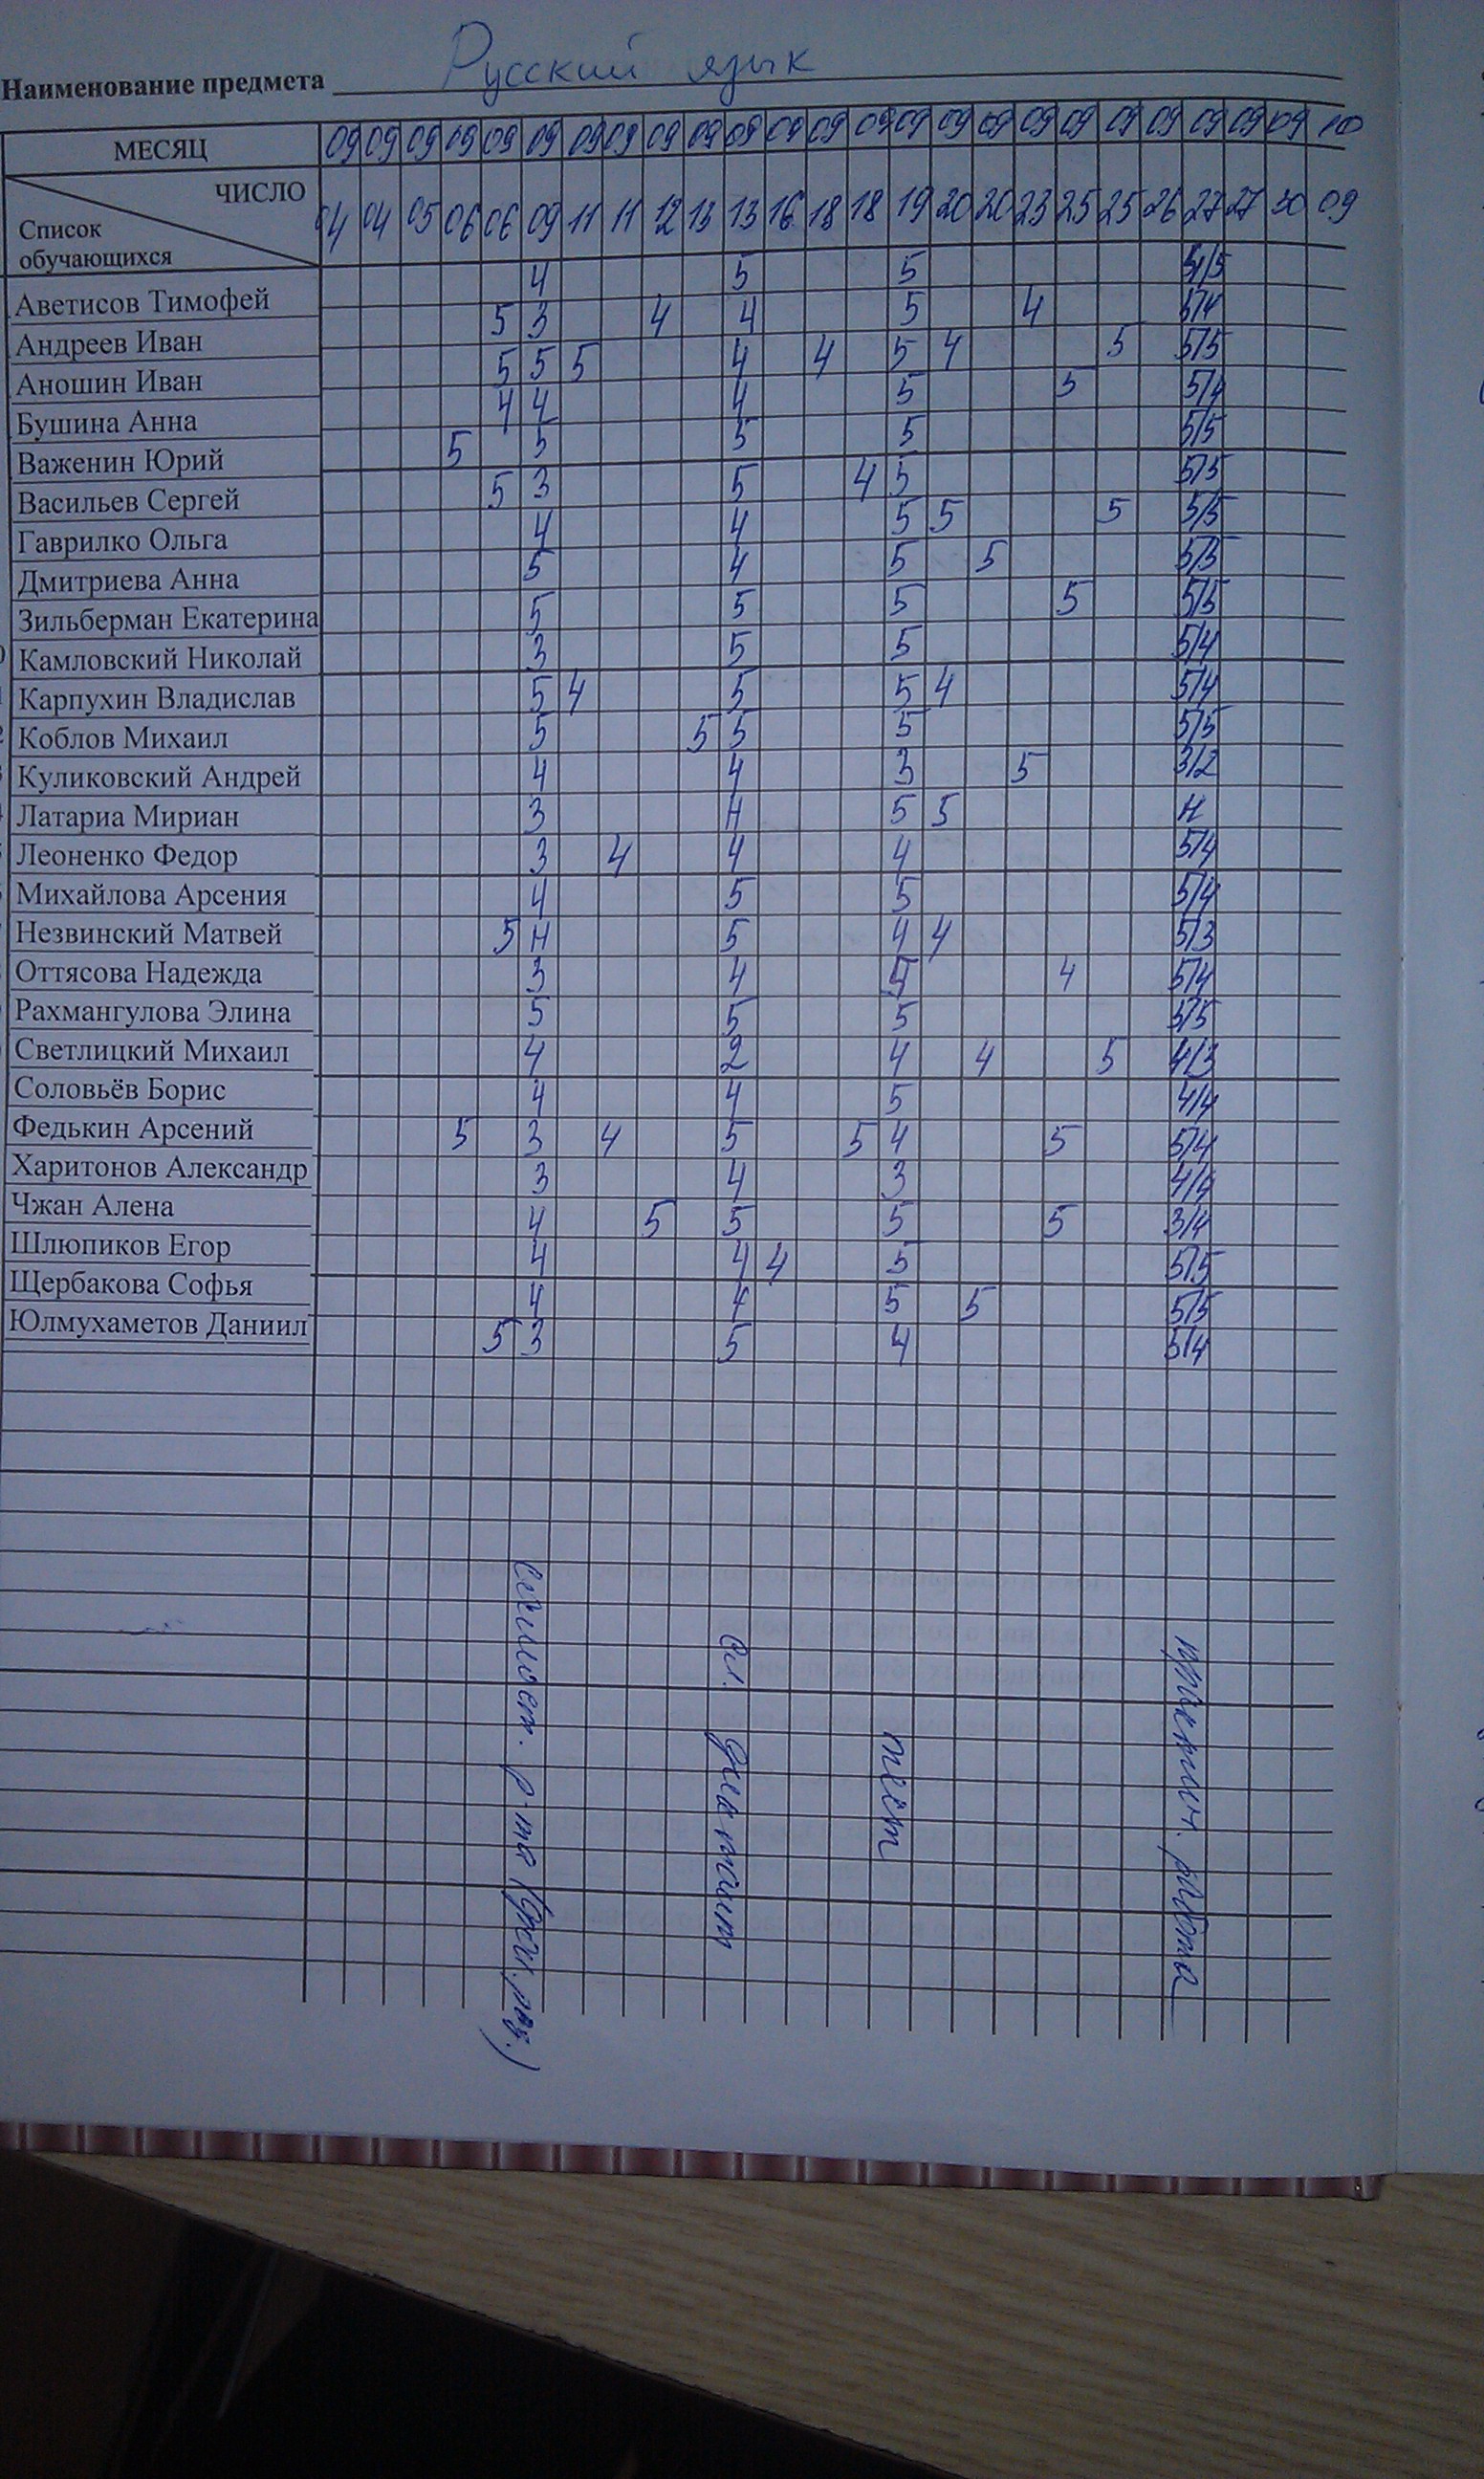 Наименование предмета Русский язык
МЕСЯЦ 09 09 09 09 09 09 09 09 09 09 09 09 09 09 09 09 09 09 09 09 09 09 09 09 10
ЧИСЛО 04 04 05 06 06 09 11 11 12 13 13 16 18 18 19 20 20 23 25 25 26 27 27 30 09
Список
обучающихся
Аветисов Тимофей 4 5 5 5/5
Андреев Иван 5 3 4 4 5 4 5/4
Аношин Иван 5 5 5 4 4 5 4 5 5/5
Бушина Анна 4 4 4 5 5 5/4
Важенин Юрий 5 5 5 5 5/5
Васильев Сергей 5 3 5 4 5 5/5
Гаврилко Ольга 4 4 5 5 5 5/5
Дмитриева Анна 5 4 5 5 5/5
Зильберман Екатерина 5 5 5 5 5/5
Камловский Николай 3 5 5 5/4
Карпухин Владислав 5 4 5 5 4 5/4
Коблов Михаил 5 5 5 5 5/5
Куликовский Андрей 4 4 3 5 3/2
Латариа Мириан 3 Н 5 5 Н
Леоненко Федор 3 4 4 4 5/4
Михайлова Арсения 4 5 5 5/4
Незвинский Матвей 5 Н 5 4 4 5/3
Оттясова Надежда 3 4 4 5/4
Рахмангулова Элина 5 5 5 5/5
Светлицкий Михаил 4 2 4 4 5 4/3
Соловьёв Борис 4 4 5 4/4
Федькин Арсений 5 3 4 5 5 4 5 5/4
Харитонов Александр 3 4 3 4/4
Чжан Алена 4 5 5 5 5 3/4
Шлюпиков Егор 4 4 4 5 5/5
Щербакова Софья 4 4 5 5 5/5
Юлмухаметов Даниил 5 3 5 4 5/4
самост. р-та
сл. диктант
тест
практич. работа